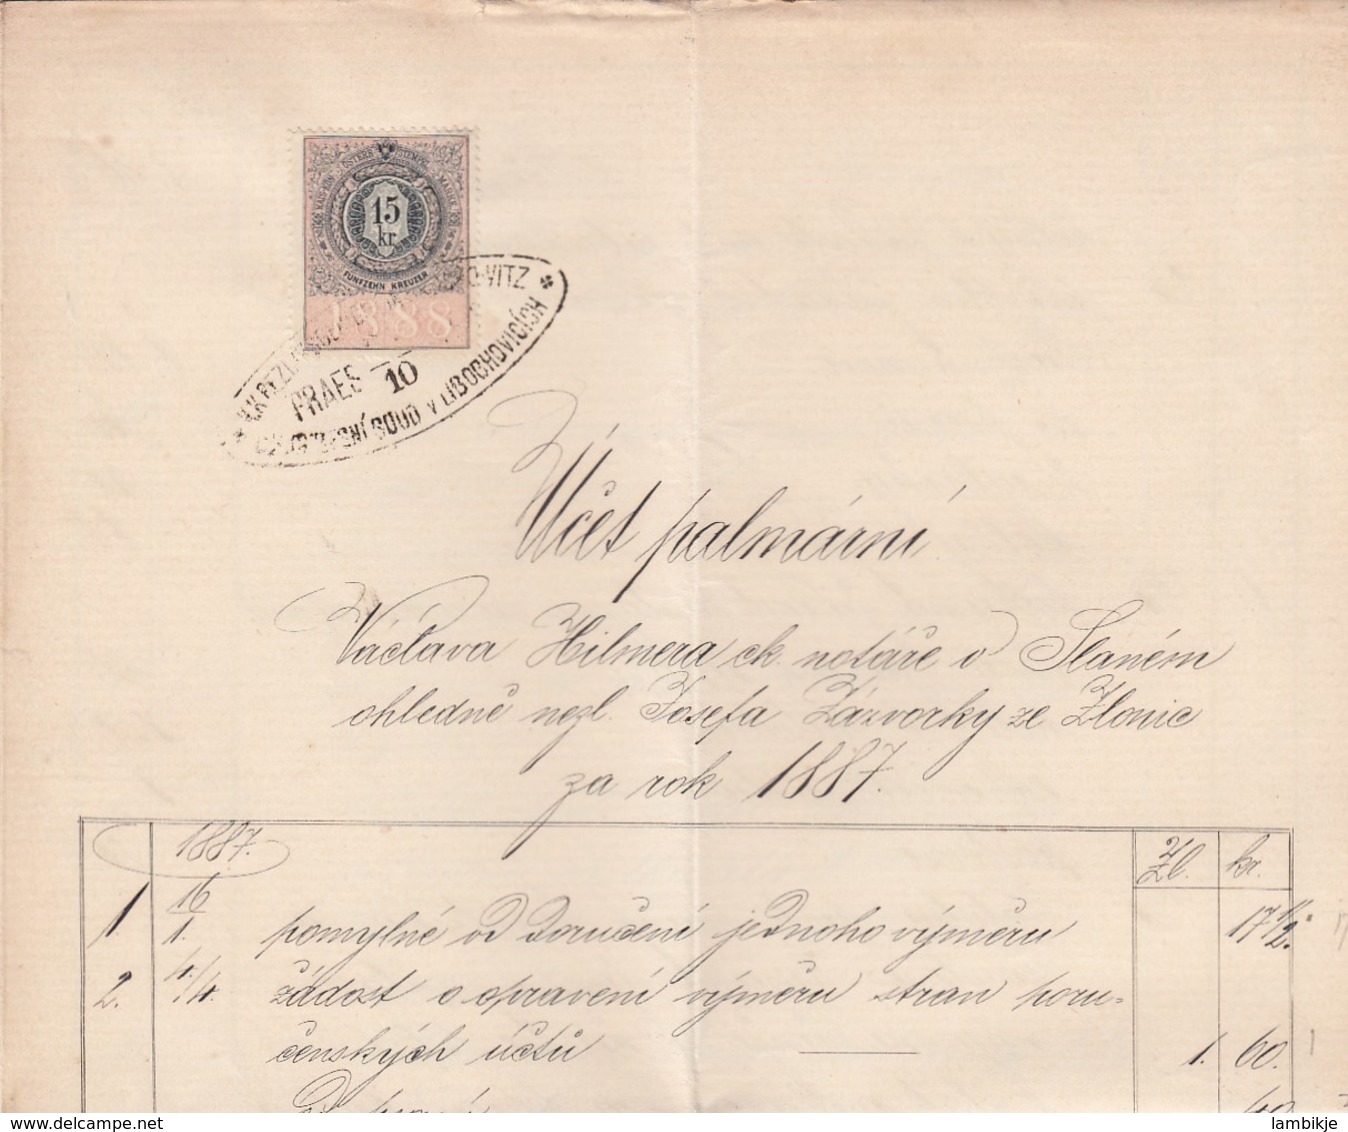 15
kr
FÜNFZEHN KREUZER
1888
VITZ
PRAES 10
SOUD V LIBOCHOVICÍCH
Účet palmární
Václava Hilmera ck. notáře v Slaném
ohledně nezl. Josefa Závorky ze Zlonic
za rok 1887.
1887. Zl. kr.
1. 16/1. pomylné od doručení jednoho výměru 17 1/2.
2. 4./4. žádost o opravení výměru stran poru=
čenských účtů — 1. 60.
40
www.delcampe.net
lambikje